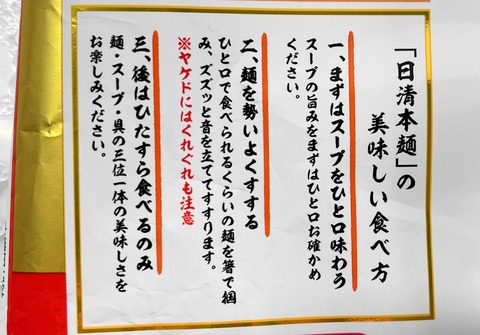 「日清本麺」の
美味しい食べ方
一、まずはスープをひと口味わう
スープの旨みをまずはひと口お確かめ
ください。
二、麺を勢いよくすする
ひと口で食べられるくらいの麺を箸で掴
み、ズズッと音を立ててすすります。
※ヤケドにはくれぐれも注意
三、後はひたすら食べるのみ
麺・スープ・具の三位一体の美味しさを
お楽しみください。